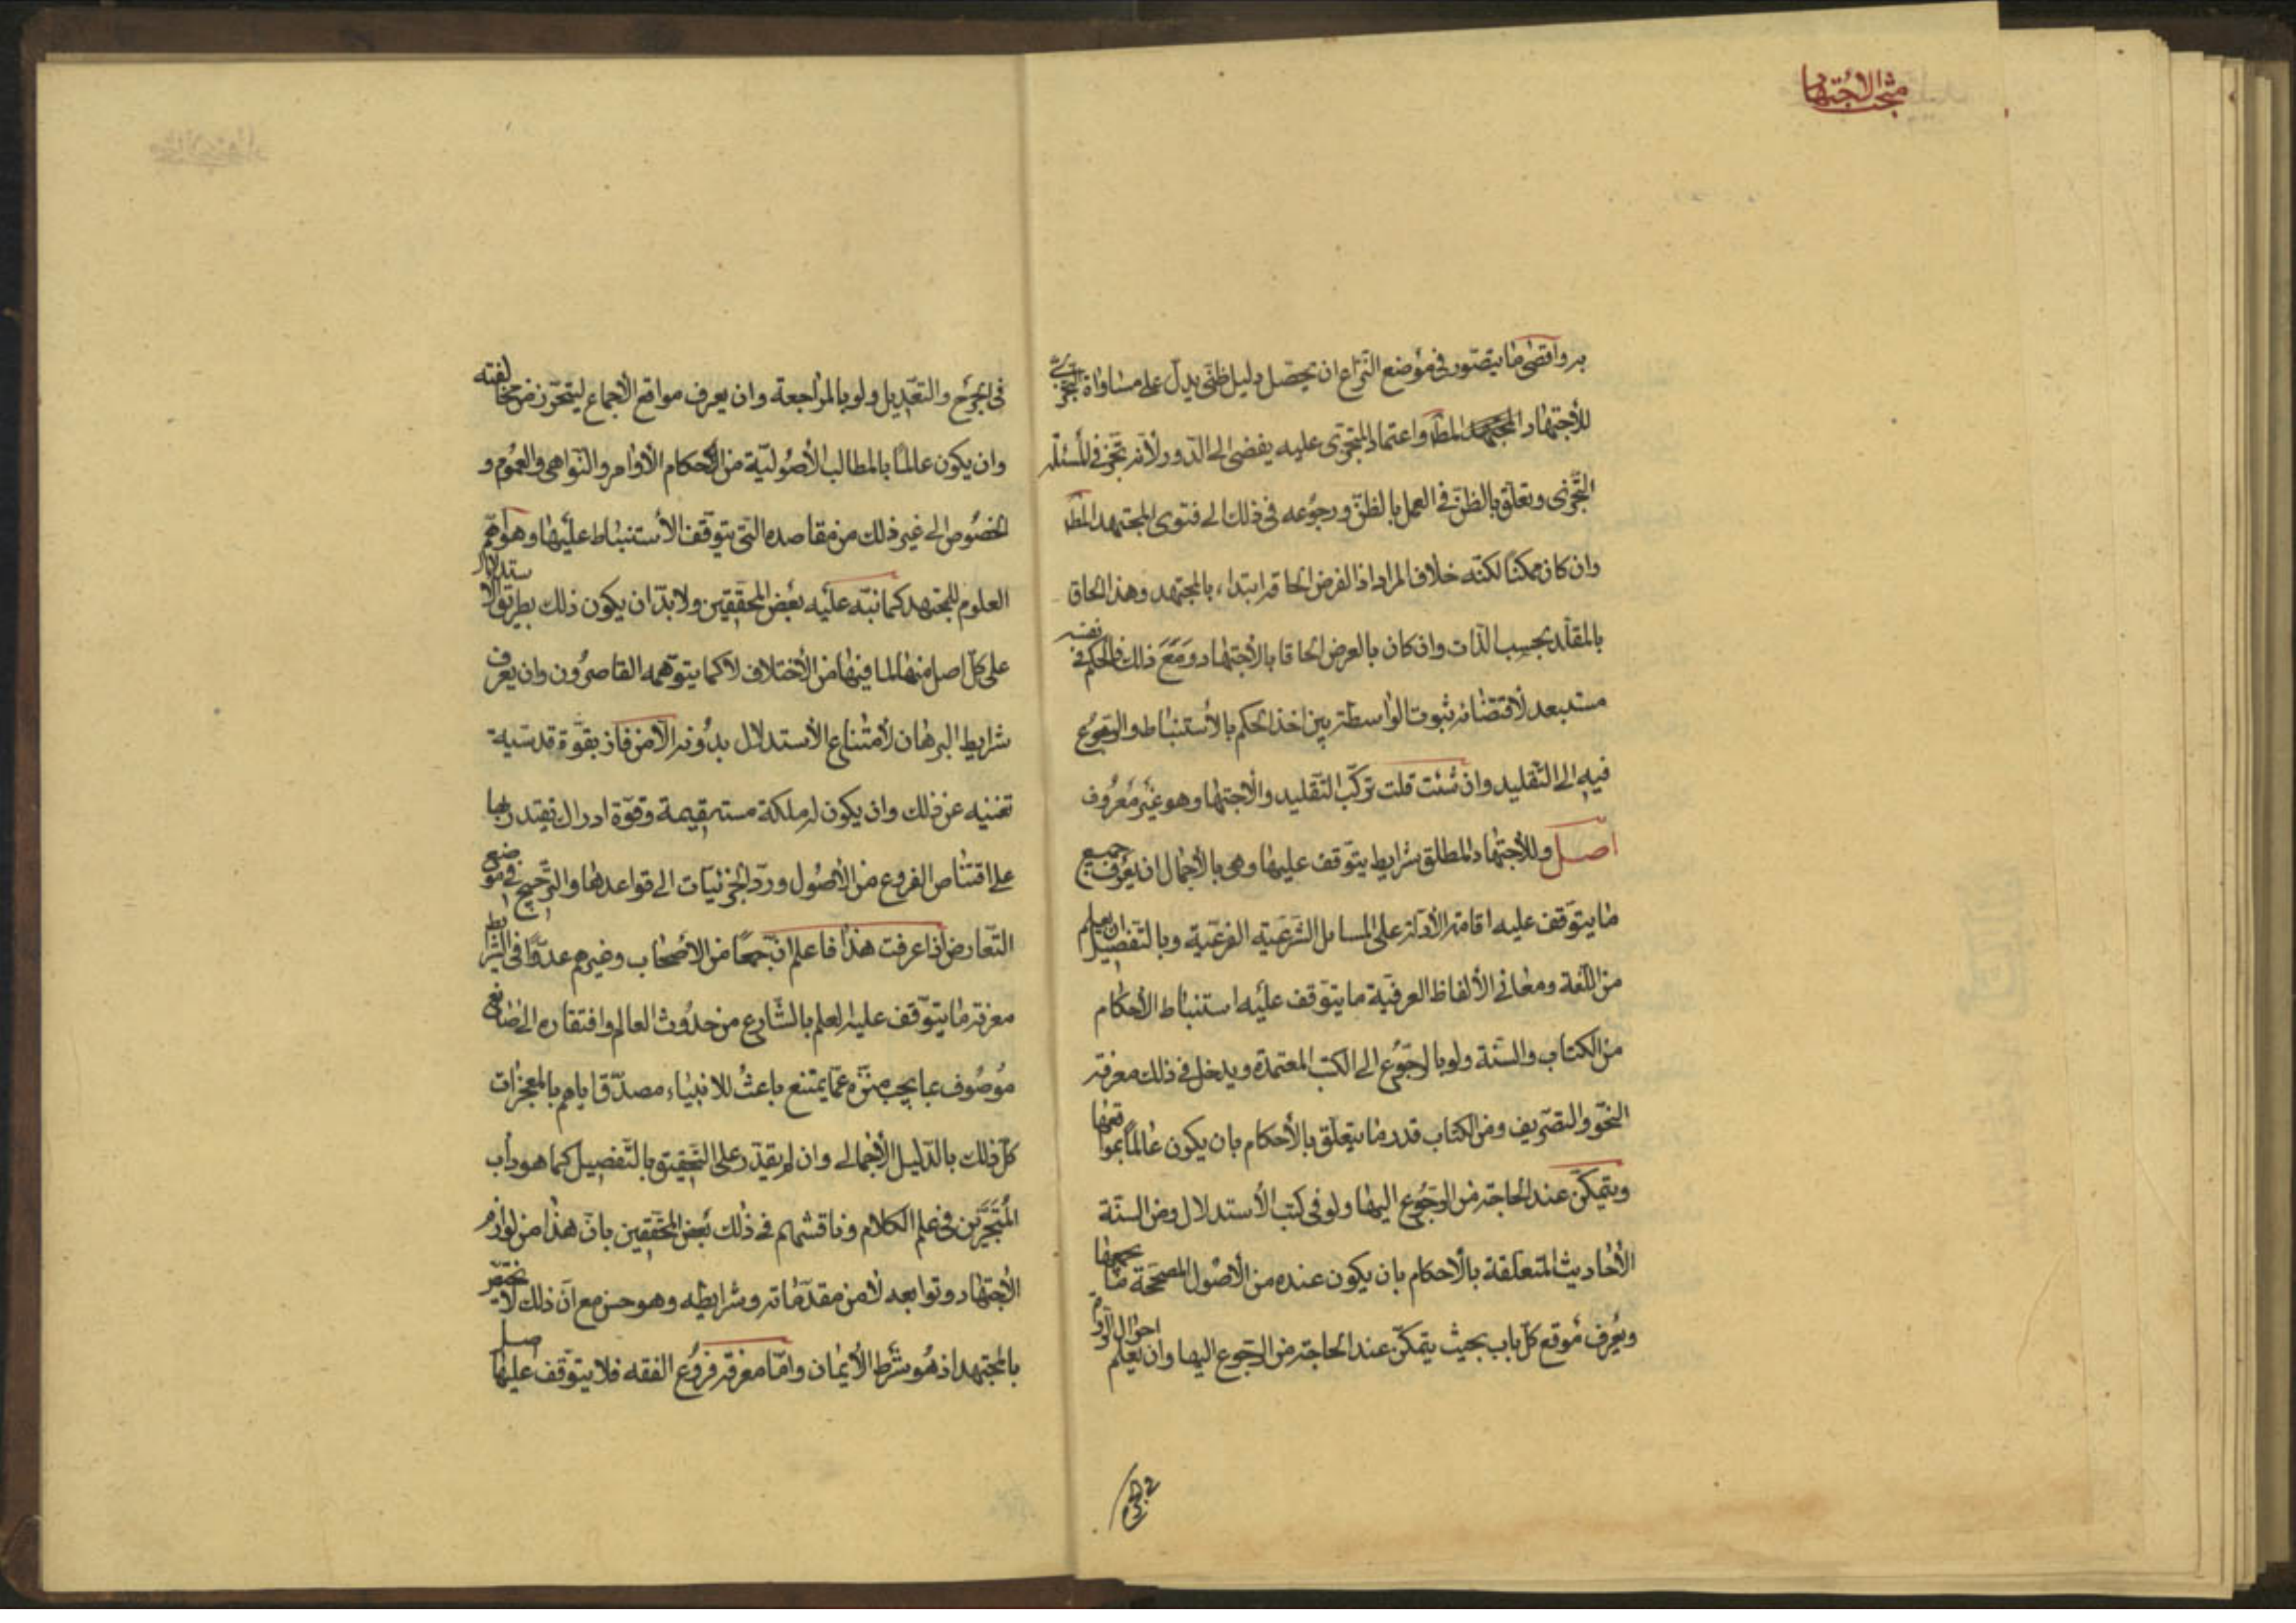 مبحث الاجتهاد
به واقصى ما يتصور فى موضع النزاع ان يحصل دليل ظنى يدل على مساواة التجزى
للأجتهاد المط واعتماد المتجزى عليه يفضى الى الدور ولأنه تجز فى المسئلة
التجزى وتعلق بالظن فى العمل بالظن ورجوعه فى ذلك الى فتوى المجتهد المط
وان كان ممكنا لكنه خلاف المراد اذ الفرض الحاقه ابتداء بالمجتهد وهذا الحاق
بالمقلد بحسب الذات وان كان بالعرض الحاقا بالأجتهاد ومع ذلك فالحكم فى نفسه
مستبعد لأقتضائه ثبوت الواسطة بين اخذ الحكم بالأستنباط والرجوع
فيه الى التقليد وان شئت قلت تركب التقليد والأجتهاد وهو غير معروف
اصل وللأجتهاد المطلق شرايط يتوقف عليها وهى بالأجمال ان يعرف جميع
ما يتوقف عليه اقامة الأدلة على المسايل الشرعية الفرعية وبالتفصيل ان يعلم
من اللغة ومعانى الألفاظ العرفية ما يتوقف عليه استنباط الأحكام
من الكتاب والسنة ولو بالرجوع الى الكتب المعتمدة ويدخل فى ذلك معرفة
النحو والتصريف ومن الكتاب قدر ما يتعلق بالأحكام بان يكون عالما بمواقعها
ويتمكن عند الحاجة من الرجوع اليها ولو فى كتب الأستدلال ومن السنة
الأحاديث المتعلقة بالأحكام بان يكون عنده من الأصول المصححة ما يجمعها
ويعرف موقع كل باب بحيث يتمكن عند الحاجة من الرجوع اليها وان يعلم احوال الرواة
فى الجرح
فى الجرح والتعديل ولو بالمراجعة وان يعرف مواقع الأجماع ليتحرز من مخالفته
وان يكون عالما بالمطالب الأصولية من احكام الأوامر والنواهى والعموم و
الخصوص الى غير ذلك من مقاصده التى يتوقف الأستنباط عليها وهو اهم
العلوم للمجتهد كما نبه عليه بعض المحققين ولا بد ان يكون ذلك بطريق الاستدلال
على كل اصل منها لما فيها من الأختلاف لا كما يتوهمه القاصرون وان يعرف
شرايط البرهان لأمتناع الأستدلال بدونه الا من فاز بقوة قدسية
تغنيه عن ذلك وان يكون له ملكة مستقيمة وقوة ادراك يقتدر بها
على اقتناص الفروع من الأصول ورد الجزئيات الى قواعدها والترجيح فى موضع
التعارض اذا عرفت هذا فاعلم ان جمعا من الاصحاب وغيرهم عدوا فى الشرايط
معرفة ما يتوقف عليه العلم بالشارع من حدوث العالم وافتقاره الى صانع
موصوف بما يجب منزه عما يمتنع باعث للانبياء مصدق اياهم بالمعجزات
كل ذلك بالدليل الأجمالى وان لم يقدر على التحقيق بالتفصيل كما هو داب
المتبحرين فى علم الكلام وناقشهم فى ذلك بعض المحققين بان هذا من لوازم
الأجتهاد وتوابعه لا من مقدماته وشرايطه وهو حسن مع ان ذلك لا يختص
بالمجتهد اذ هو شرط الأيمان واما معرفة فروع الفقه فلا يتوقف عليها اصل